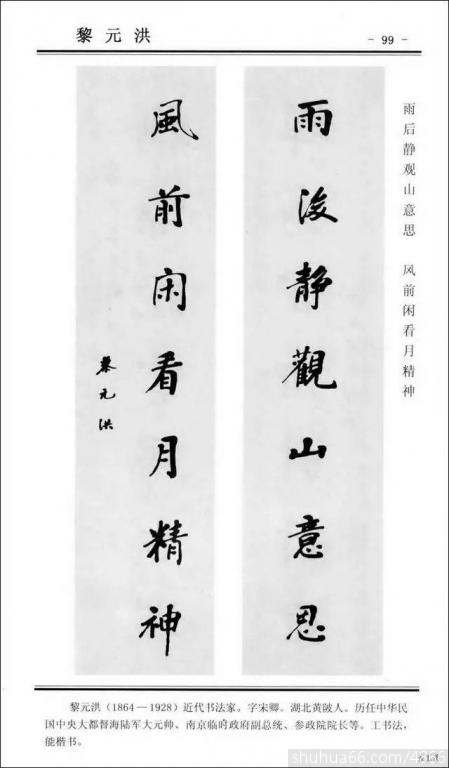 黎元洪
- 99 -
雨后静观山意思 风前闲看月精神
雨後静觀山意思
風前闲看月精神
黎元洪
黎元洪（1864—1928）近代书法家。字宋卿。湖北黄陂人。历任中华民
国中央大都督海陆军大元帅、南京临时政府副总统、参政院院长等。工书法，
能楷书。